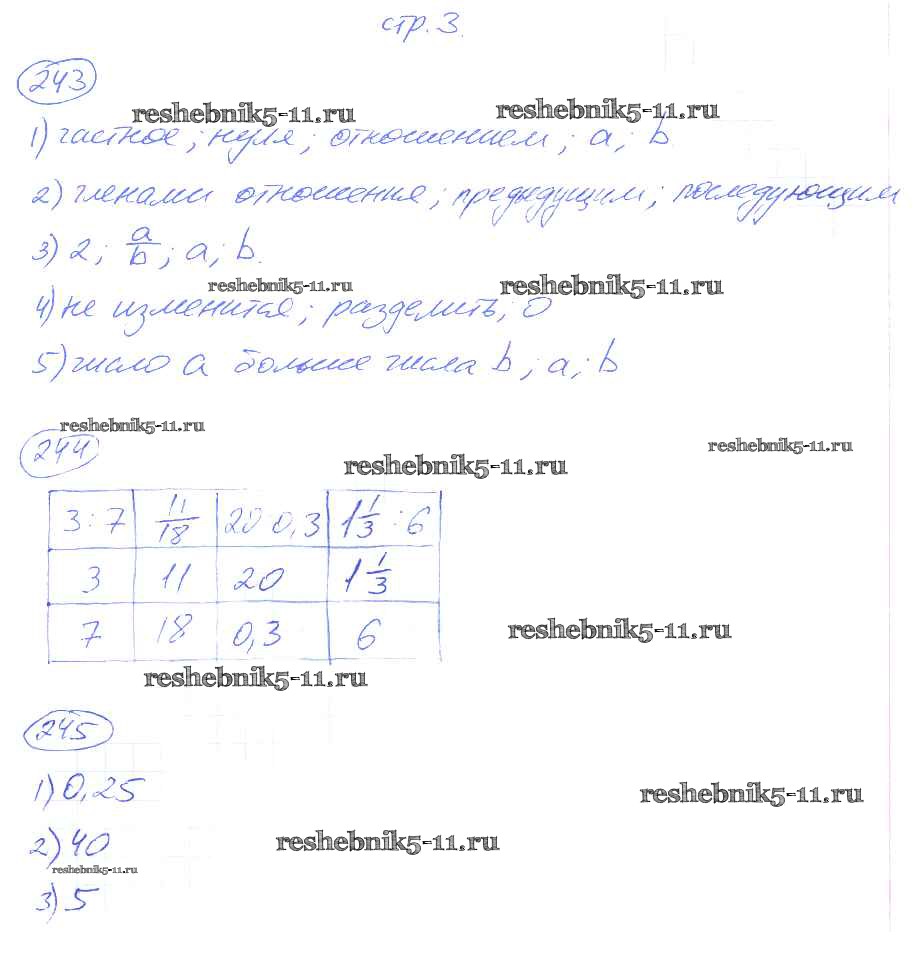 стр. 3.
243
reshebnik5-11.ru reshebnik5-11.ru
1) частное; нуля; отношением; a; b.
2) членами отношения; предыдущим; последующим
3) 2; a/b; a; b.
reshebnik5-11.ru reshebnik5-11.ru
4) не изменится; разделить; 0
5) число a больше числа b; a; b
reshebnik5-11.ru
244
reshebnik5-11.ru
reshebnik5-11.ru
3:7 11/18 20:0,3 1 1/3 : 6
3 11 20 1 1/3
7 18 0,3 6
reshebnik5-11.ru
reshebnik5-11.ru
245
1) 0,25
reshebnik5-11.ru
2) 40
reshebnik5-11.ru
reshebnik5-11.ru
3) 5